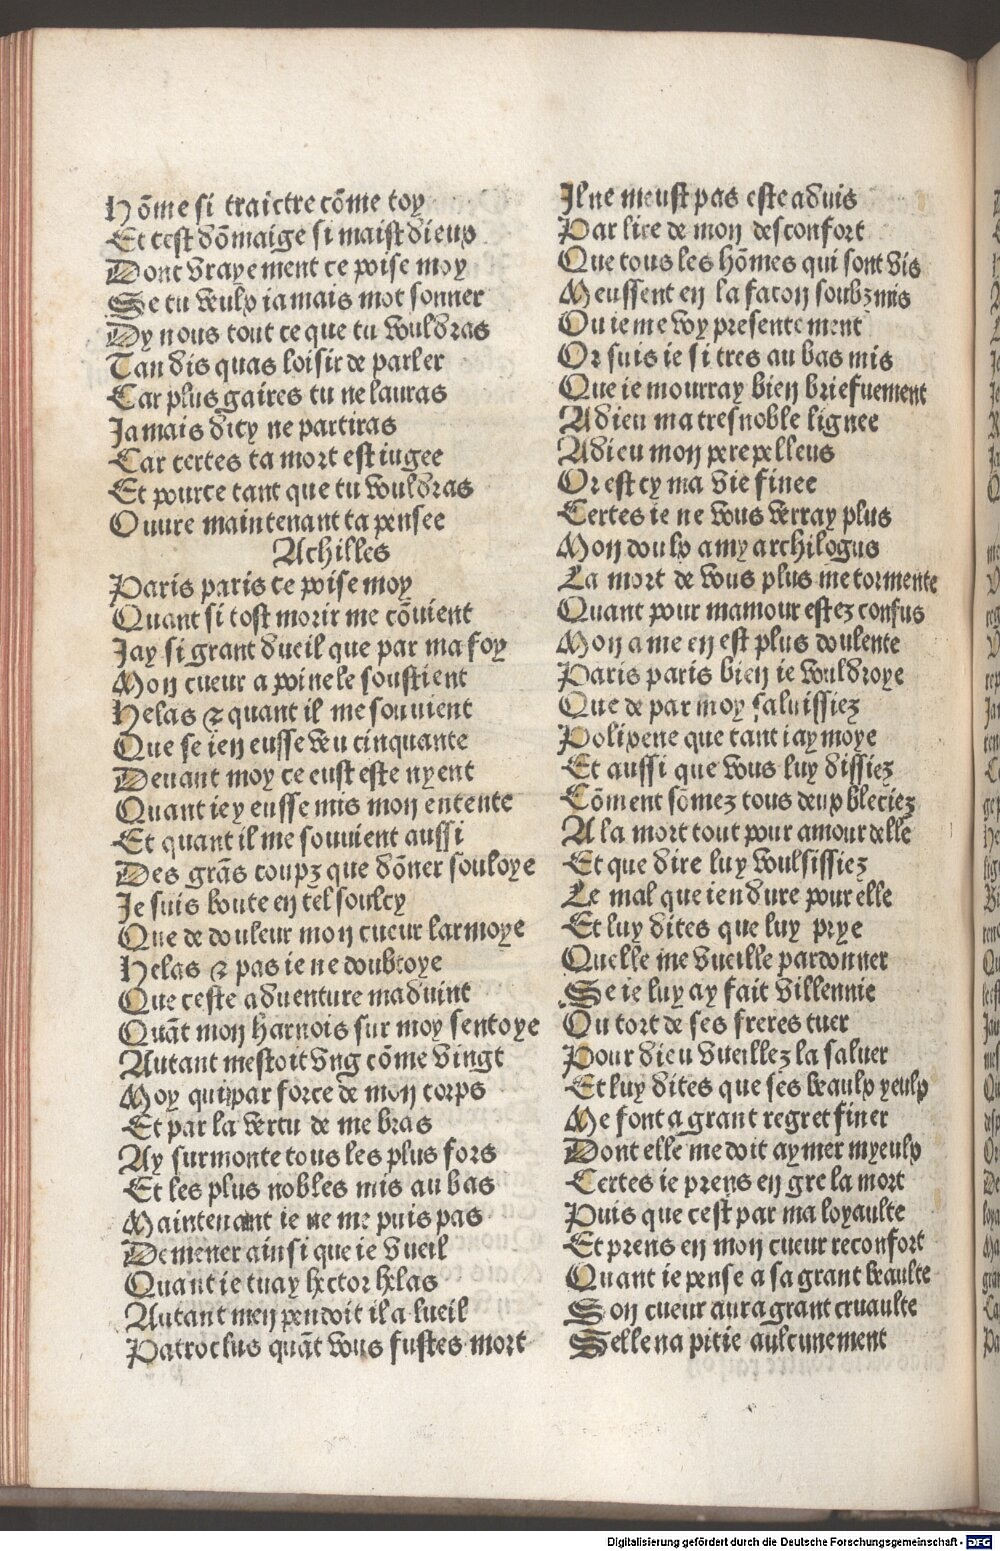 Hõme si traictre cõme toy
Et cest dõmaige si maist dieux
Dont vrayement ce poise moy
Se tu veulx iamais mot sonner
Dy nous tout ce que tu vouldras
Tandis quas loisir de parler
Car plus gaires tu ne lauras
Jamais dicy ne partiras
Car certes ta mort est iugee
Et pource tant que tu vouldras
Ouure maintenant ta pensee
Achilles
Paris paris ce poise moy
Quant si tost morir me cõuient
Jay si grant dueil que par ma foy
Mon cueur a poine le soustient
Helas ⁊ quant il me souuient
Que se ien eusse veu cinquante
Deuant moy ce eust este nyent
Quant iey eusse mis mon entente
Et quant il me souuient aussi
Des grãs coupz que dõner souloye
Je suis boute en tel soulcy
Que de douleur mon cueur larmoye
Helas ⁊ pas ie ne doubtoye
Que ceste aduenture maduint
Quãt mon harnois sur moy sentoye
Autant mestoit vng cõme vingt
Moy qui par force de mon corps
Et par la vertu de me bras
Ay surmonte tous les plus fors
Et les plus nobles mis au bas
Maintenant ie ne me puis pas
Demener ainsi que ie vueil
Quant ie tuay hector helas
Autant men pendoit il a lueil
Patroclus quãt vous fustes mort
Il ne meust pas este aduis
Par lire de mon desconfort
Que tous les hõmes qui sont vis
Meussent en la facon soubzmis
Ou ie me voy presentement
Or suis ie si tres au bas mis
Que ie mourray bien briefuement
Adieu ma tresnoble lignee
Adieu mon pere pelleus
Or est cy ma vie finee
Certes ie ne vous verray plus
Mon doulx amy archilogus
La mort de vous plus me tormente
Quant pour mamour estez confus
Mon ame en est plus doulente
Paris paris bien ie vouldroye
Que de par moy saluissiez
Polixene que tant iay moye
Et aussi que vous luy dissiez
Cõment sõmez tous deux bleciez
A la mort tout pour amour delle
Et que dire luy voulsissiez
Le mal que iendure pour elle
Et luy dites que luy prye
Quelle me vueille pardonner
Se ie luy ay fait villennie
Ou tort de ses freres tuer
Pour dieu vueillez la saluer
Et luy dites que ses beaulx yeulx
Me font a grant regret finer
Dont elle me doit aymer myeulx
Certes ie prens en gre la mort
Puis que cest par ma loyaulte
Et prens en mon cueur reconfort
Quant ie pense a sa grant beaulte
Son cueur aura grant cruaulte
Selle na pitie aulcunement
Digitalisierung gefördert durch die Deutsche Forschungsgemeinschaft - DFG